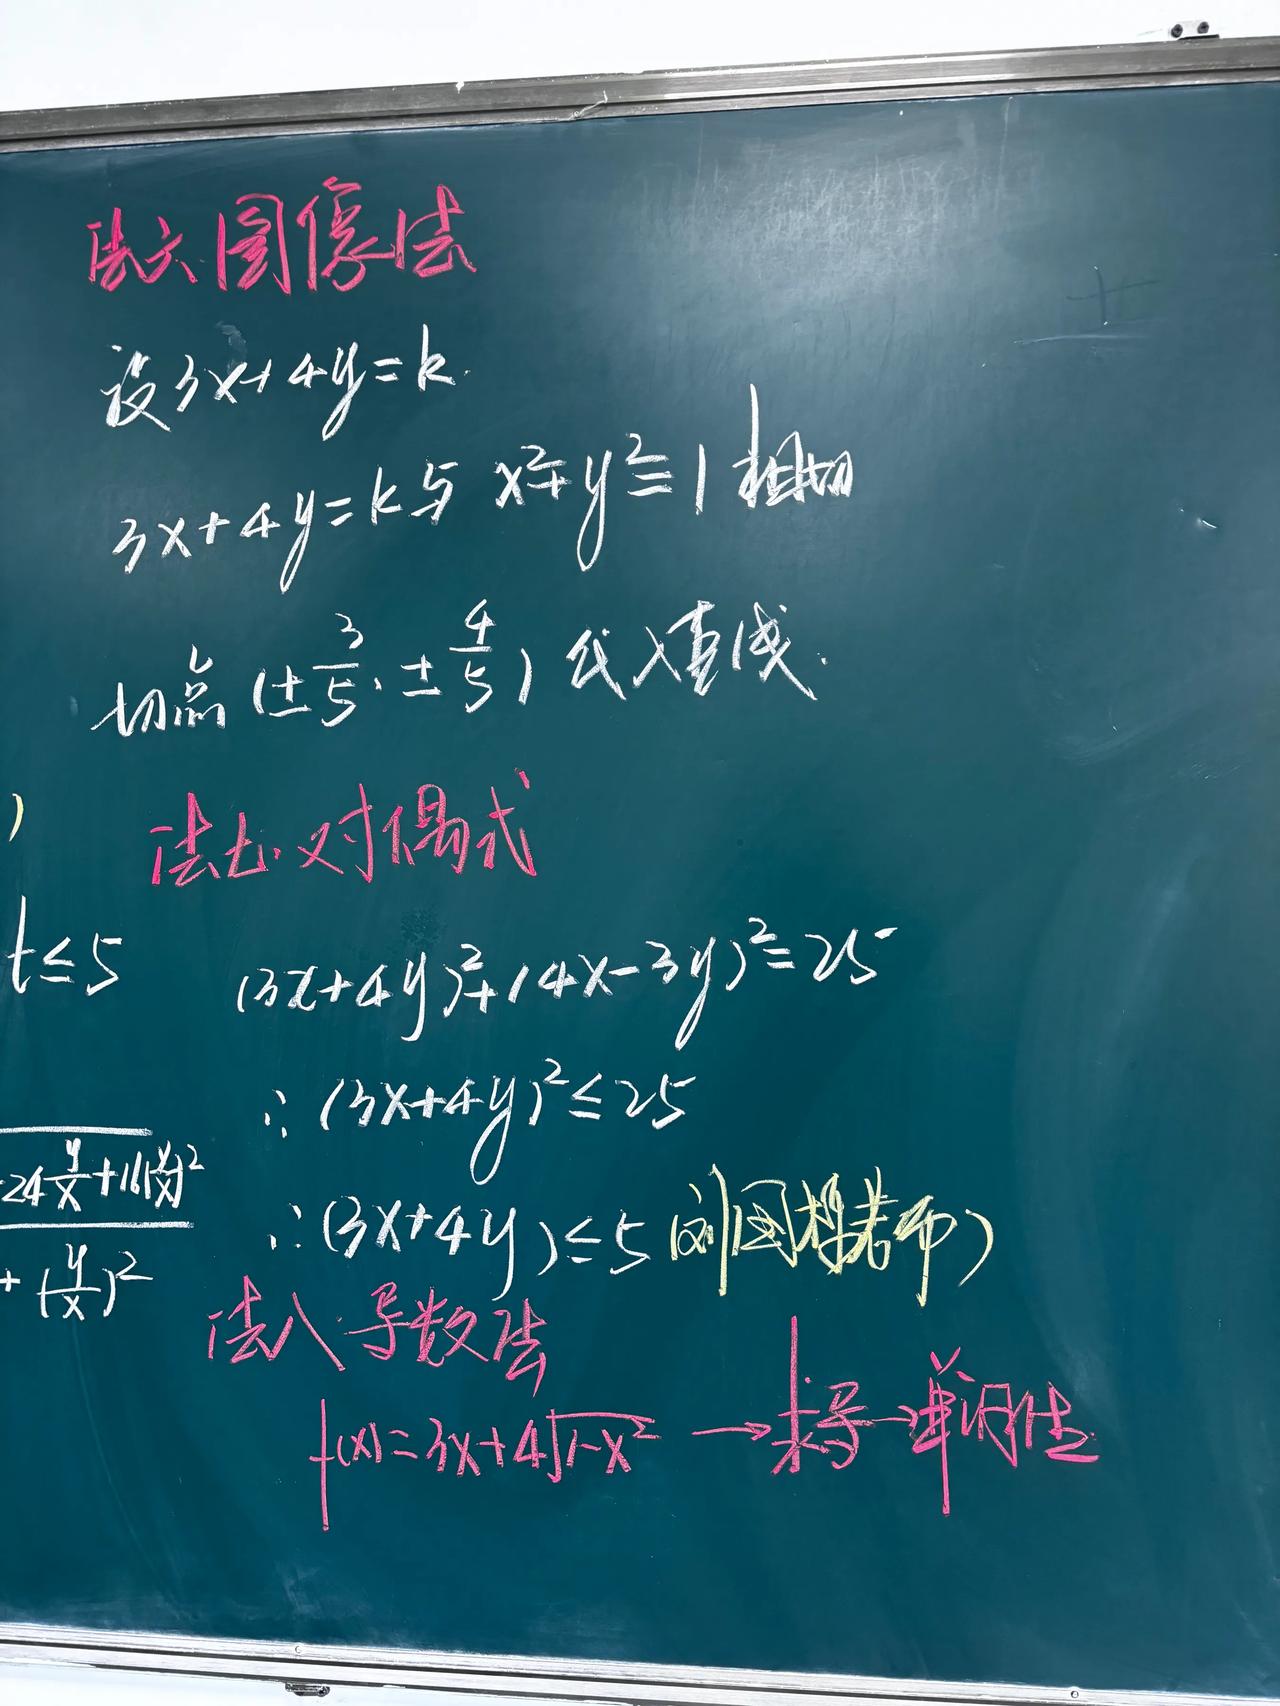 法六.图像法
设3x+4y=k.
3x+4y=k与 x²+y²=1相切
切点(±3/5,±4/5)代入直线.
)
法七.对偶式
t≤5
(3x+4y)²+(4x-3y)²=25
∴(3x+4y)²≤25
24y/x+16(y/x)²
∴(3x+4y)≤5
+(y/x)²
法八.导数法
f(x)=3x+4√1-x² →求导→单调性